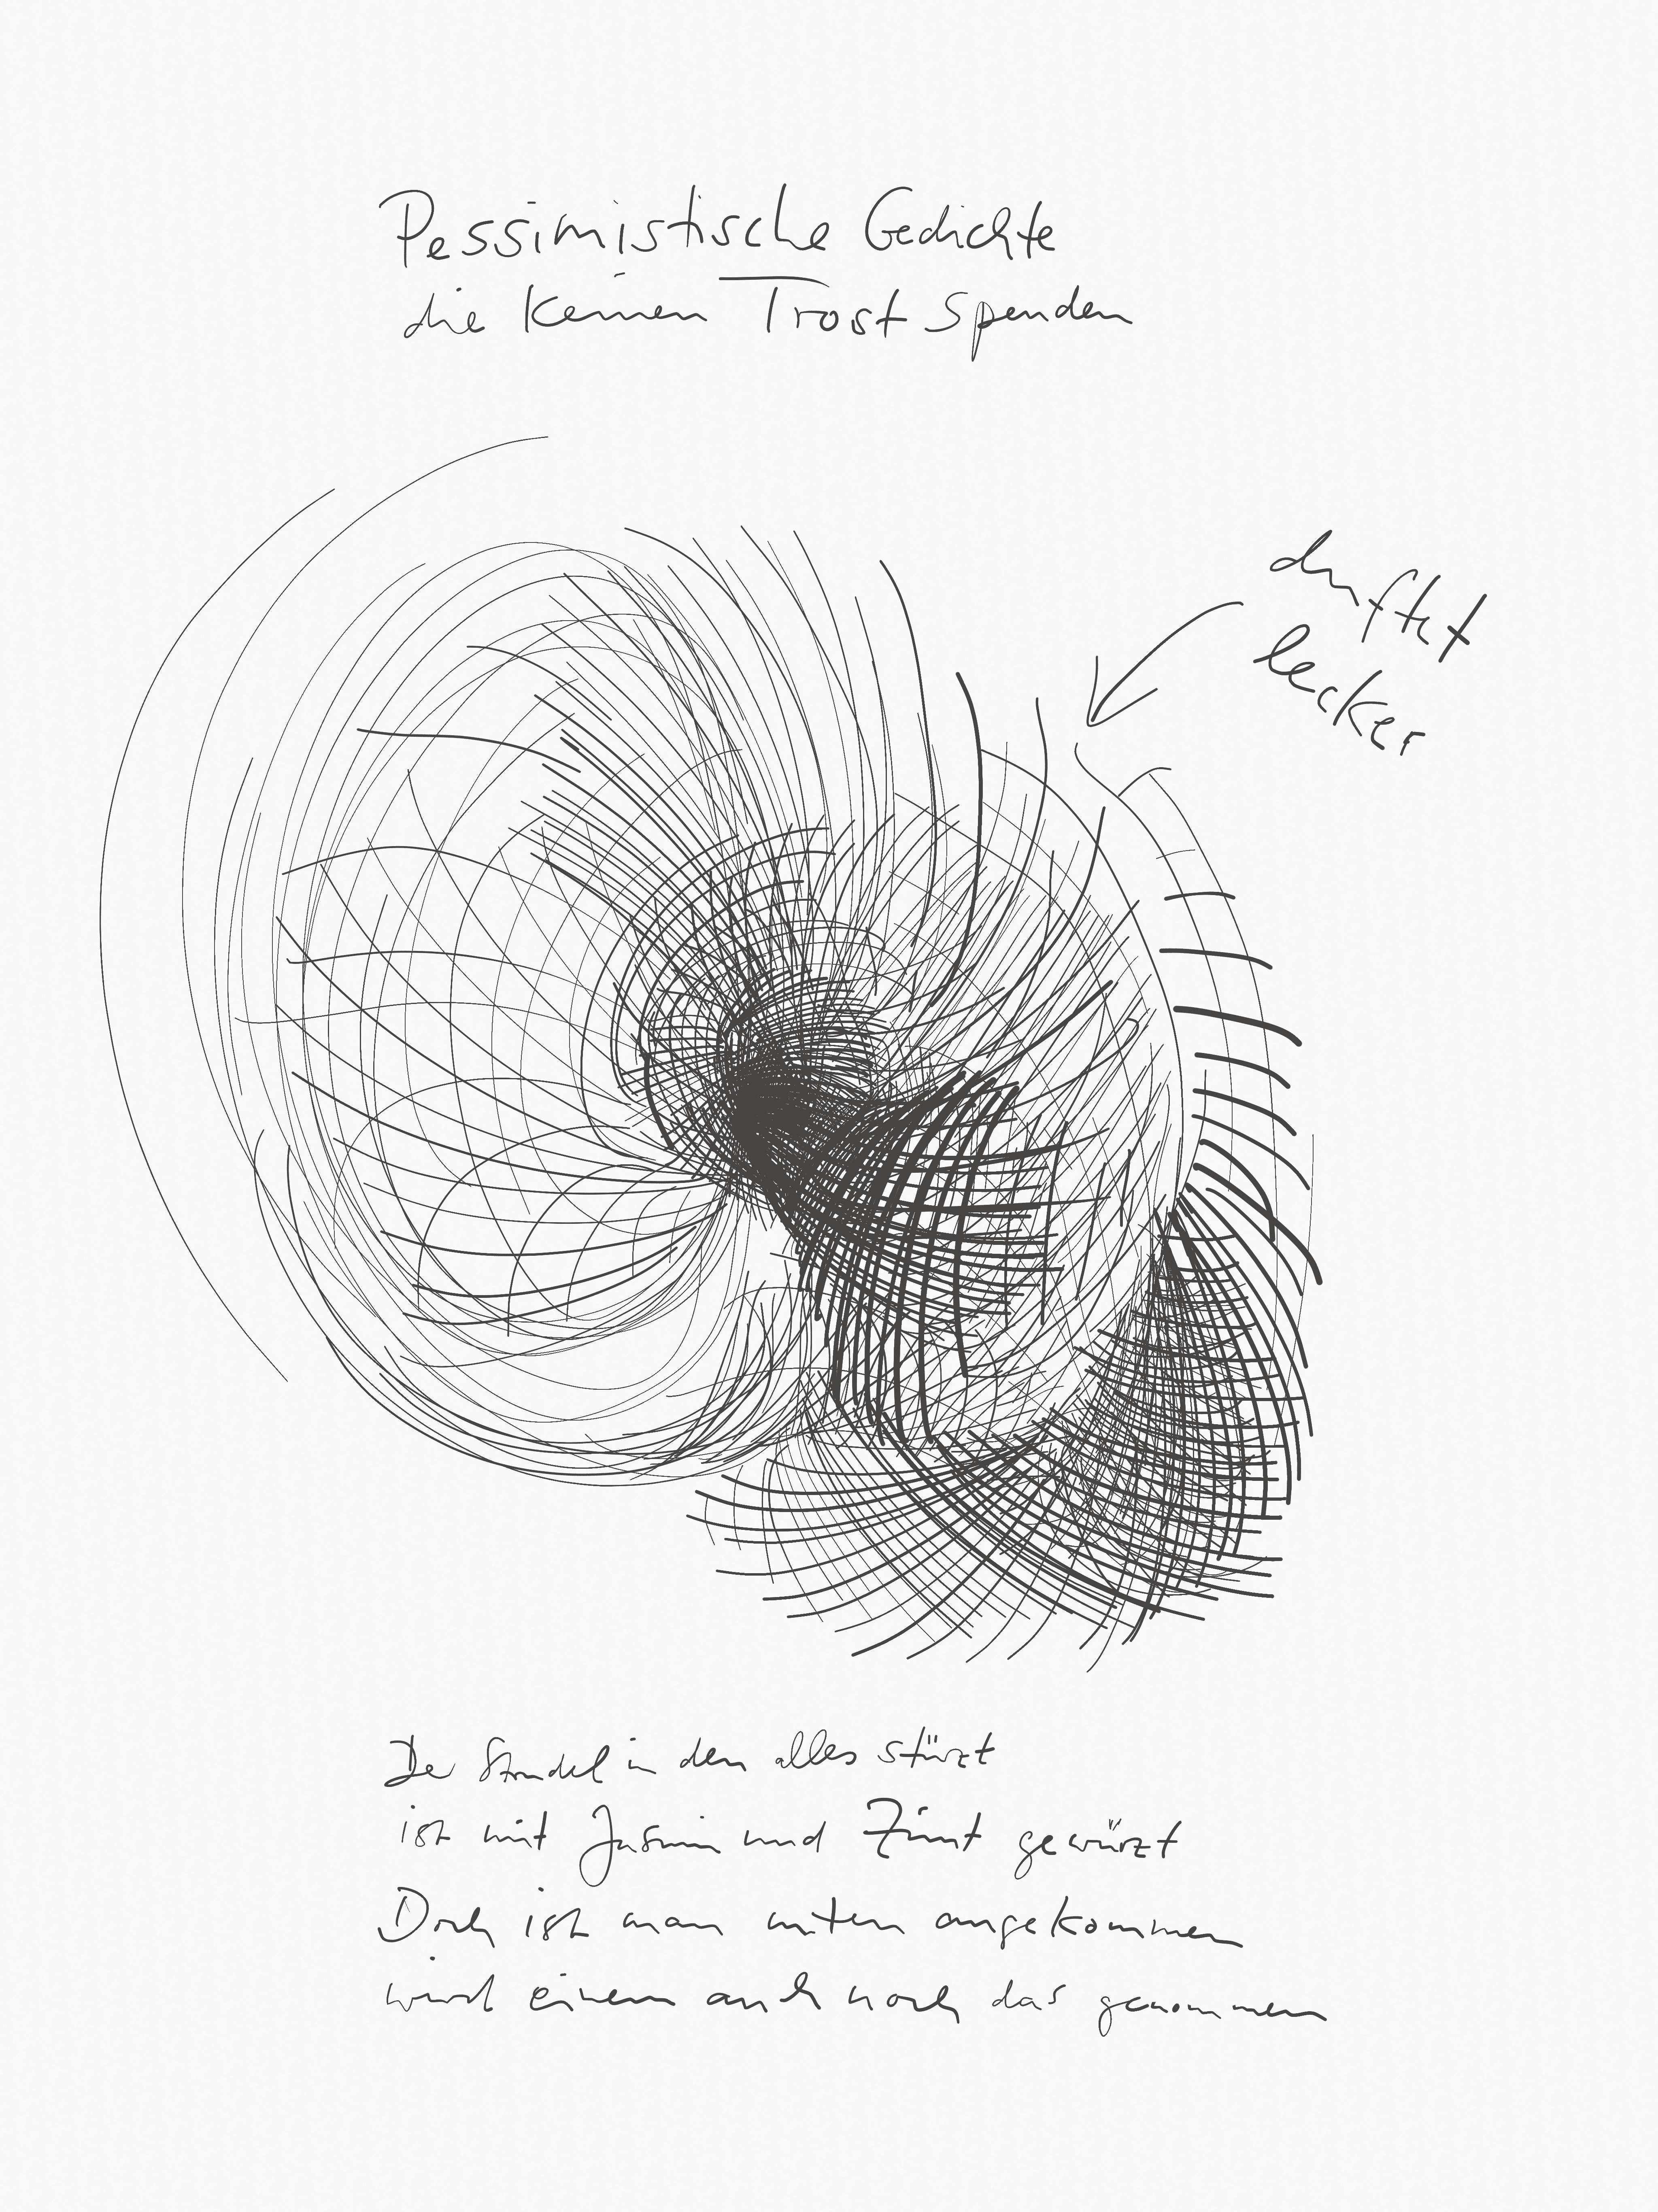 Pessimistische Gedichte
die keinen Trost spenden
duftet
lecker
Der Strudel in den alles stürzt
ist mit Jasmin und Zimt gewürzt
Doch ist man unten angekommen
wird einem auch noch das genommen